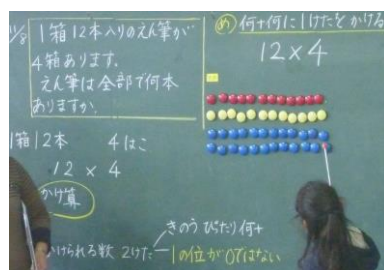 11/8
1箱12本入りのえん筆が
4箱あります。
えん筆は全部で何本
ありますか。
め 何十何に1けたをかける
12×4
1箱12本 4はこ
12 × 4
かけ算
かけられる数 2けた
きのう ぴたり何十
1の位が0ではない